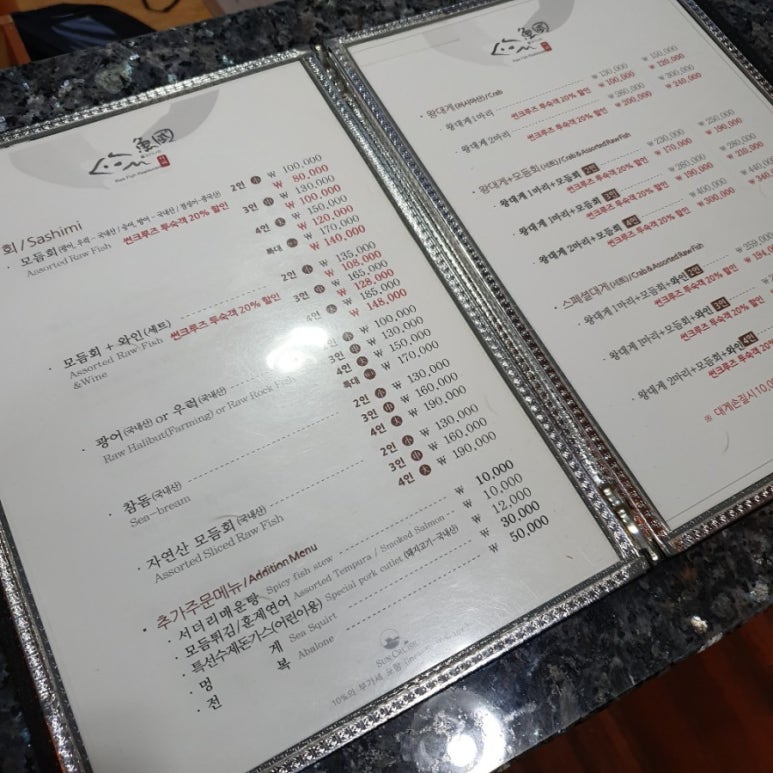 魚國
회/Sashimi
· 모듬회(광어, 우럭-국내산/숭어, 방어-국내산/점농어-중국산)
Assorted Raw Fish 썬크루즈 투숙객 20% 할인
2인 小 ₩ 100,000
₩ 80,000
3인 中 ₩ 130,000
₩ 100,000
4인 大 ₩ 150,000
₩ 120,000
특대 ₩ 170,000
₩ 140,000
· 모듬회 + 와인(세트)
Assorted Raw Fish 썬크루즈 투숙객 20% 할인
&Wine
2인 小 ₩ 135,000
₩ 108,000
3인 中 ₩ 165,000
₩ 128,000
4인 大 ₩ 185,000
₩ 148,000
· 광어(국내산) or 우럭(국내산)
Raw Halibut(Farming) or Raw Rock Fish
₩ 100,000
3인 中 ₩ 130,000
4인 大 ₩ 150,000
특대 ₩ 170,000
· 참돔(국내산)
Sea-bream
2인 小 ₩ 130,000
3인 中 ₩ 160,000
4인 大 ₩ 190,000
· 자연산 모듬회(국내산)
Assorted Sliced Raw Fish
2인 小 ₩ 130,000
3인 中 ₩ 160,000
4인 大 ₩ 190,000
추가주문메뉴/Addition Menu
· 서더리매운탕 Spicy fish stew ₩ 10,000
· 모듬튀김/훈제연어 Assorted Tempura / Smoked Salmon ₩ 10,000
· 특선수제돈가스(어린이용) Special pork cutlet (돼지고기-국내산) ₩ 12,000
· 멍 게 Sea Squirt ₩ 30,000
· 전 복 Abalone ₩ 50,000
SUN CRUISE
10%의 부가세 포함
魚國
왕대게(러시아산)/Crab
· 왕대게 1마리 ₩ 130,000 ₩ 150,000
썬크루즈 투숙객 20% 할인 ₩ 100,000 ₩ 120,000
· 왕대게 2마리 ₩ 260,000 ₩ 300,000
썬크루즈 투숙객 20% 할인 ₩ 200,000 ₩ 240,000
왕대게+모듬회(세트)/Crab & Assorted Raw Fish
· 왕대게 1마리+모듬회 2인 ₩ 230,000 ₩ 250,000
썬크루즈 투숙객 20% 할인 ₩ 170,000 ₩ 190,000
· 왕대게 1마리+모듬회 3인 ₩ 260,000 ₩ 280,000
썬크루즈 투숙객 20% 할인 ₩ 190,000 ₩ 210,000
· 왕대게 2마리+모듬회 4인 ₩ 400,000
썬크루즈 투숙객 20% 할인 ₩ 300,000
스페셜대게(세트)/Crab & Assorted Raw Fish
· 왕대게 1마리+모듬회+와인 2인
썬크루즈 투숙객 20% 할인
· 왕대게 1마리+모듬회+와인 3인
썬크루즈 투숙객 20% 할인
· 왕대게 2마리+모듬회+와인 4인
썬크루즈 투숙객 20% 할인
※ 대게손질시